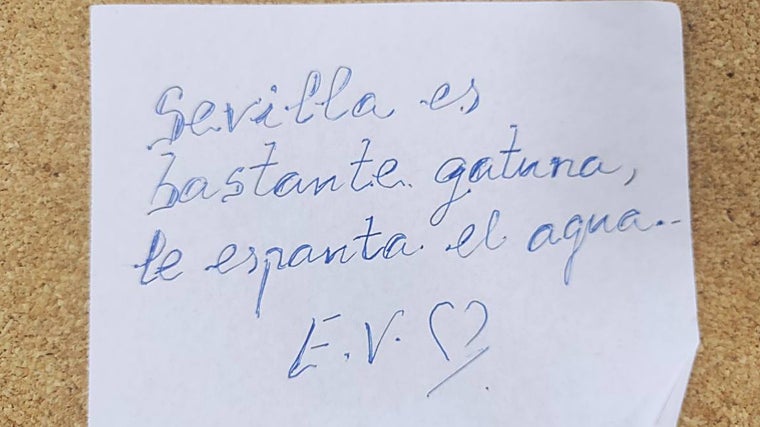 Sevilla es
bastante gatuna,
le espanta el agua..
E.V. ♡